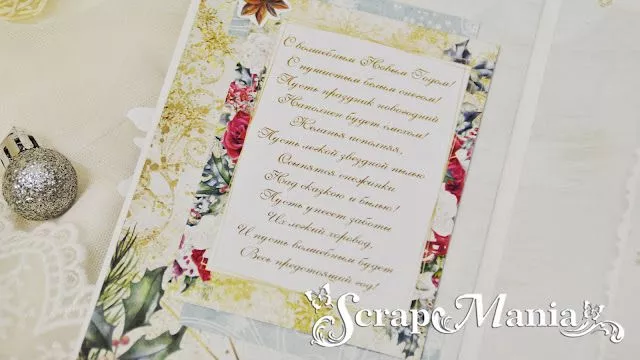 С волшебным Новым Годом!
С пушистым белым снегом!
Пусть праздник новогодний
Наполнен будет смехом!
Желанья исполняя,
Пусть легкой звездной пылью
Осыпятся снежинки
Над сказкою и былью!
Пусть унесет заботы
Их легкий хоровод,
И пусть волшебным будет
Весь предстоящий год!
ScrapMania